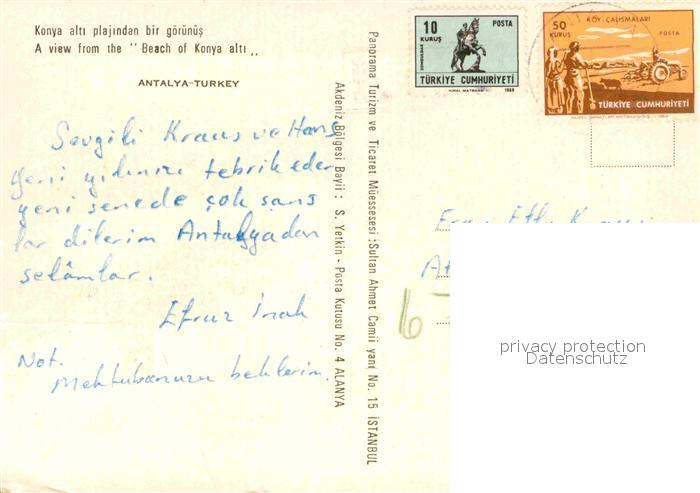 Konya altı plajından bir görünüş
A view from the " Beach of Konya altı "
ANTALYA-TURKEY
Sevgili Kraus ve Hans
yeni yılınızı tebrik eder
yeni senede çok şans
lar dilerim Antalyadan
selâmlar.
Efruz
Not.
Mektubunuzu beklerim.
Panorama Turizm ve Ticaret Müessesesi :Sultan Ahmet Camii yanı No. 15 İSTANBUL
Akdeniz Bölgesi Bayii : S. Yetkin - Posta Kutusu No. 4 ALANYA
10
KURUŞ
POSTA
TÜRKİYE CUMHURİYETİ
50
KURUŞ
KÖY ÇALIŞMALARI
POSTA
TÜRKİYE CUMHURİYETİ
6
privacy protection
Datenschutz